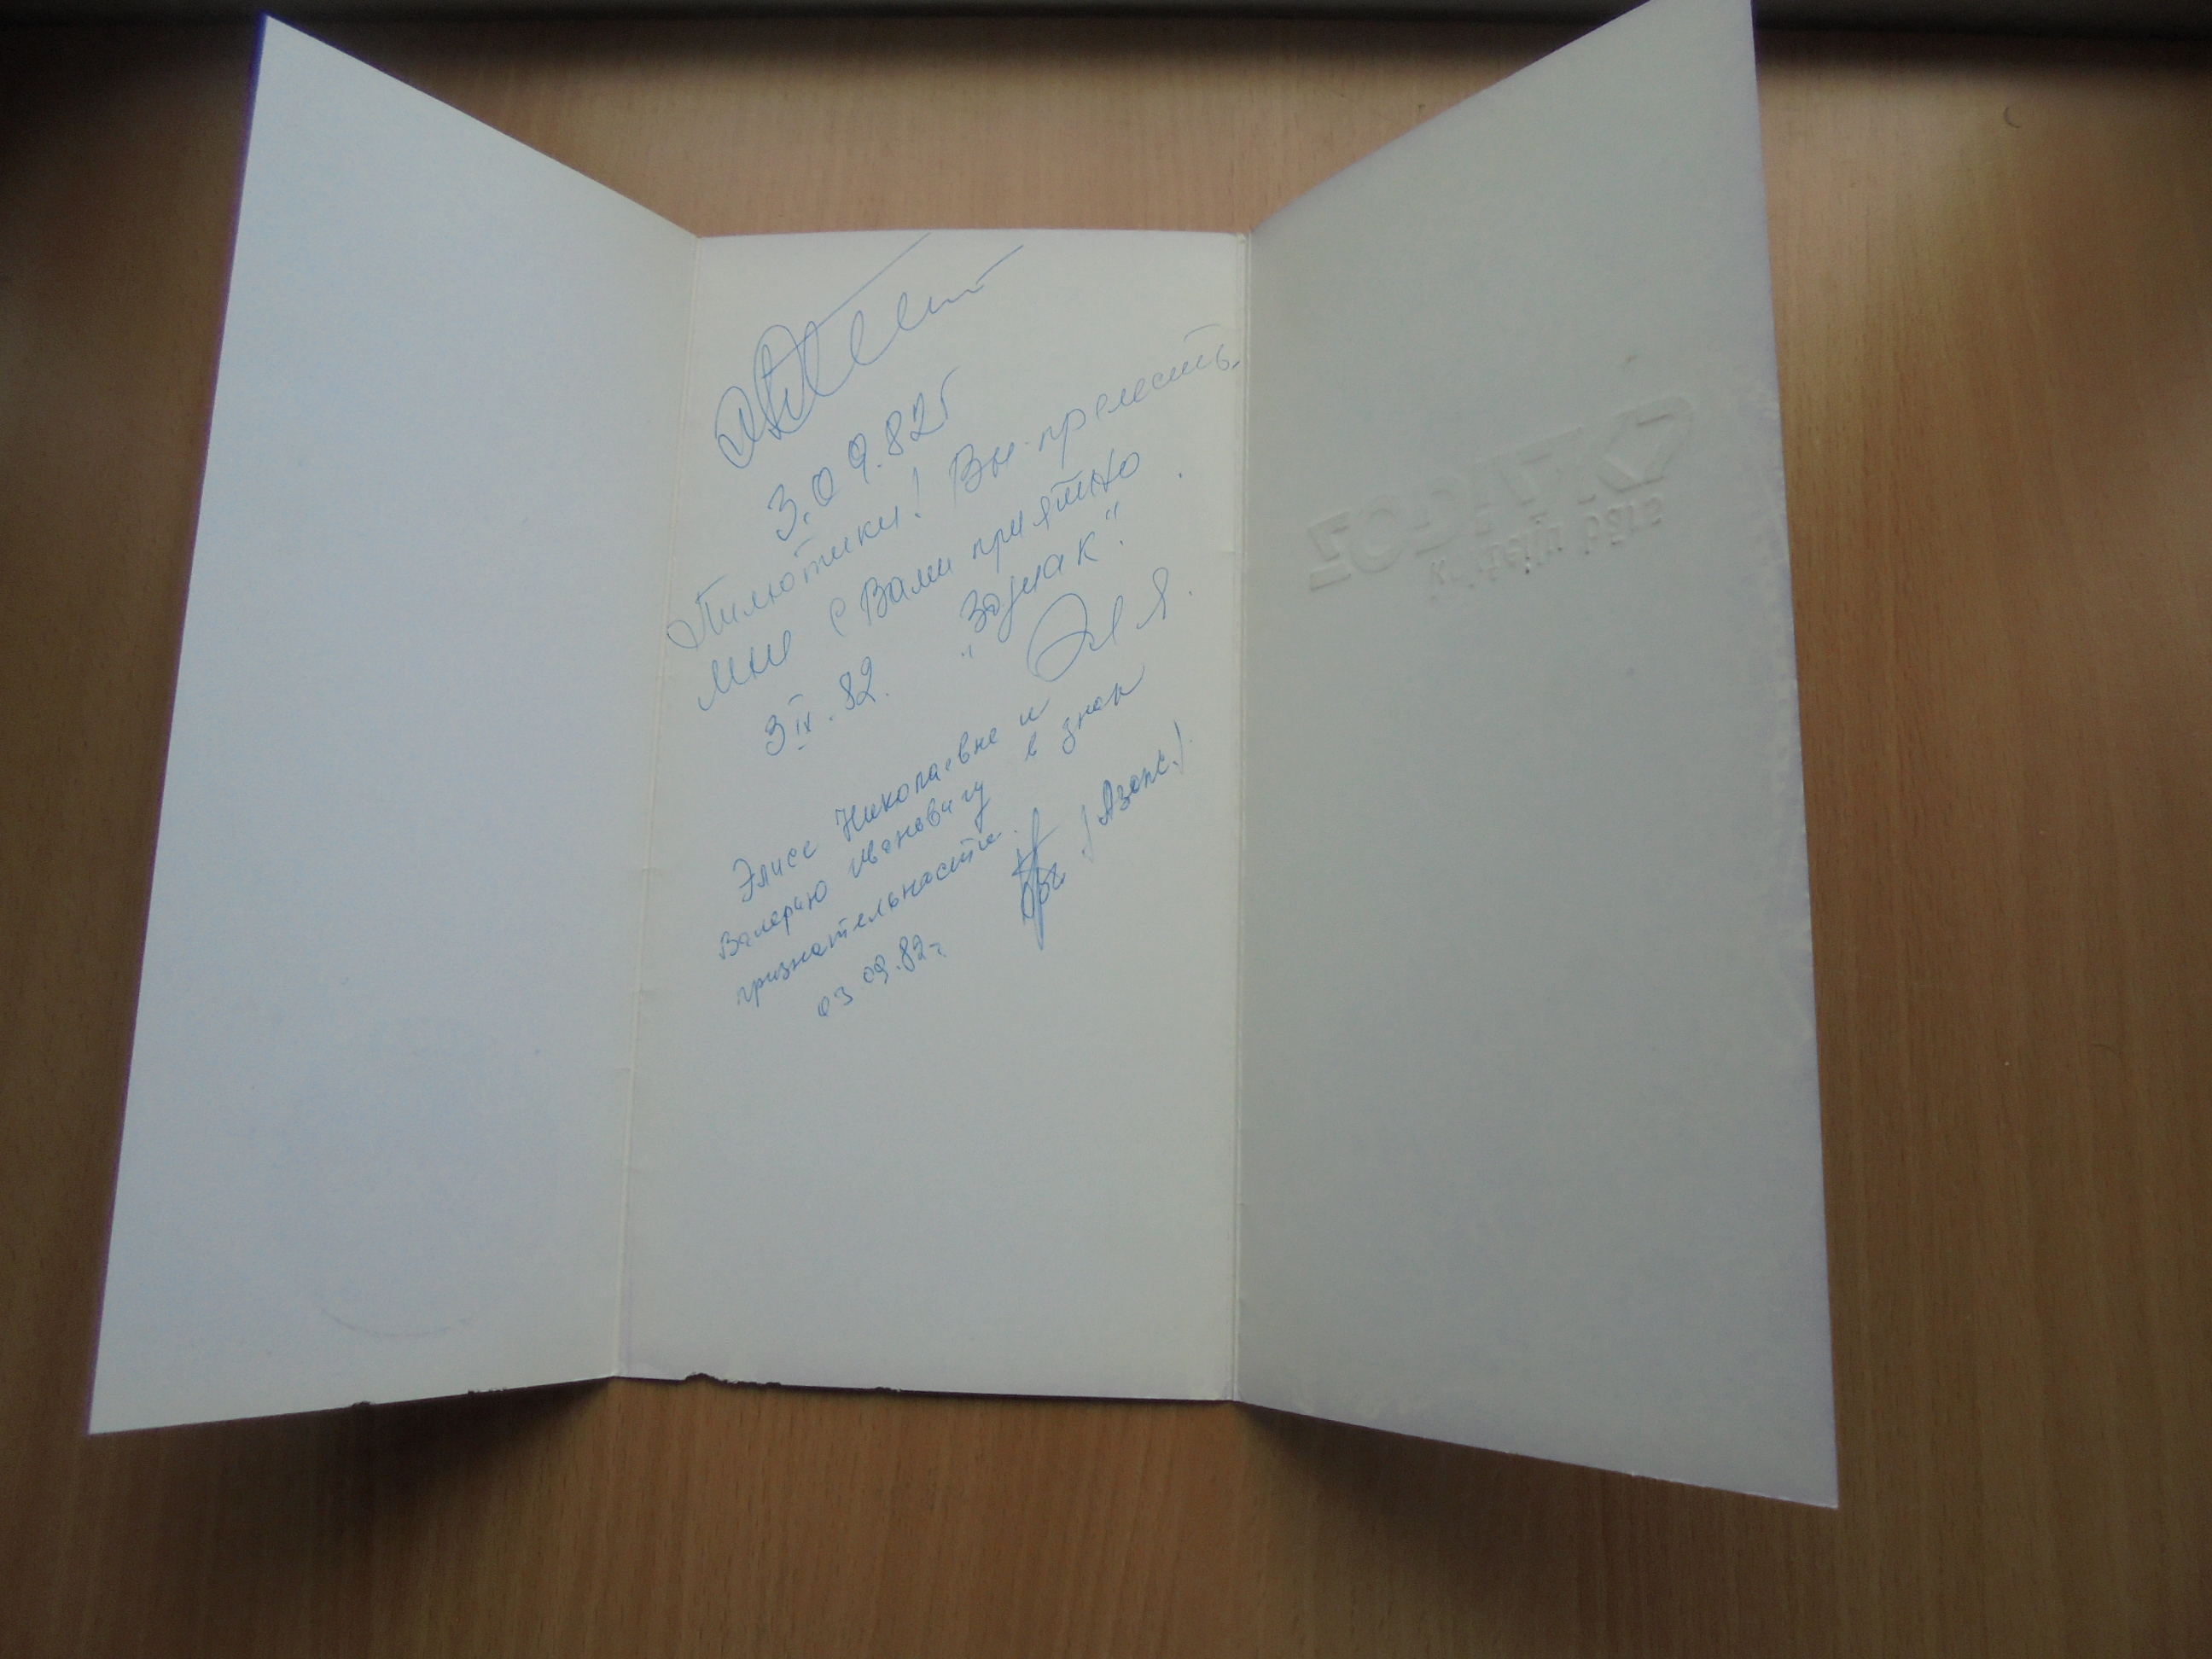 3.09.82г
Пилютики! Вы прелесть,
мне с Вами приятно.
3 IX. 82. "Зодиак".
Эля.
Элисе Николаевне и
Валерию Ивановичу в знак
признательности.
(Азопс.)
03 09.82г.
ZODIAK